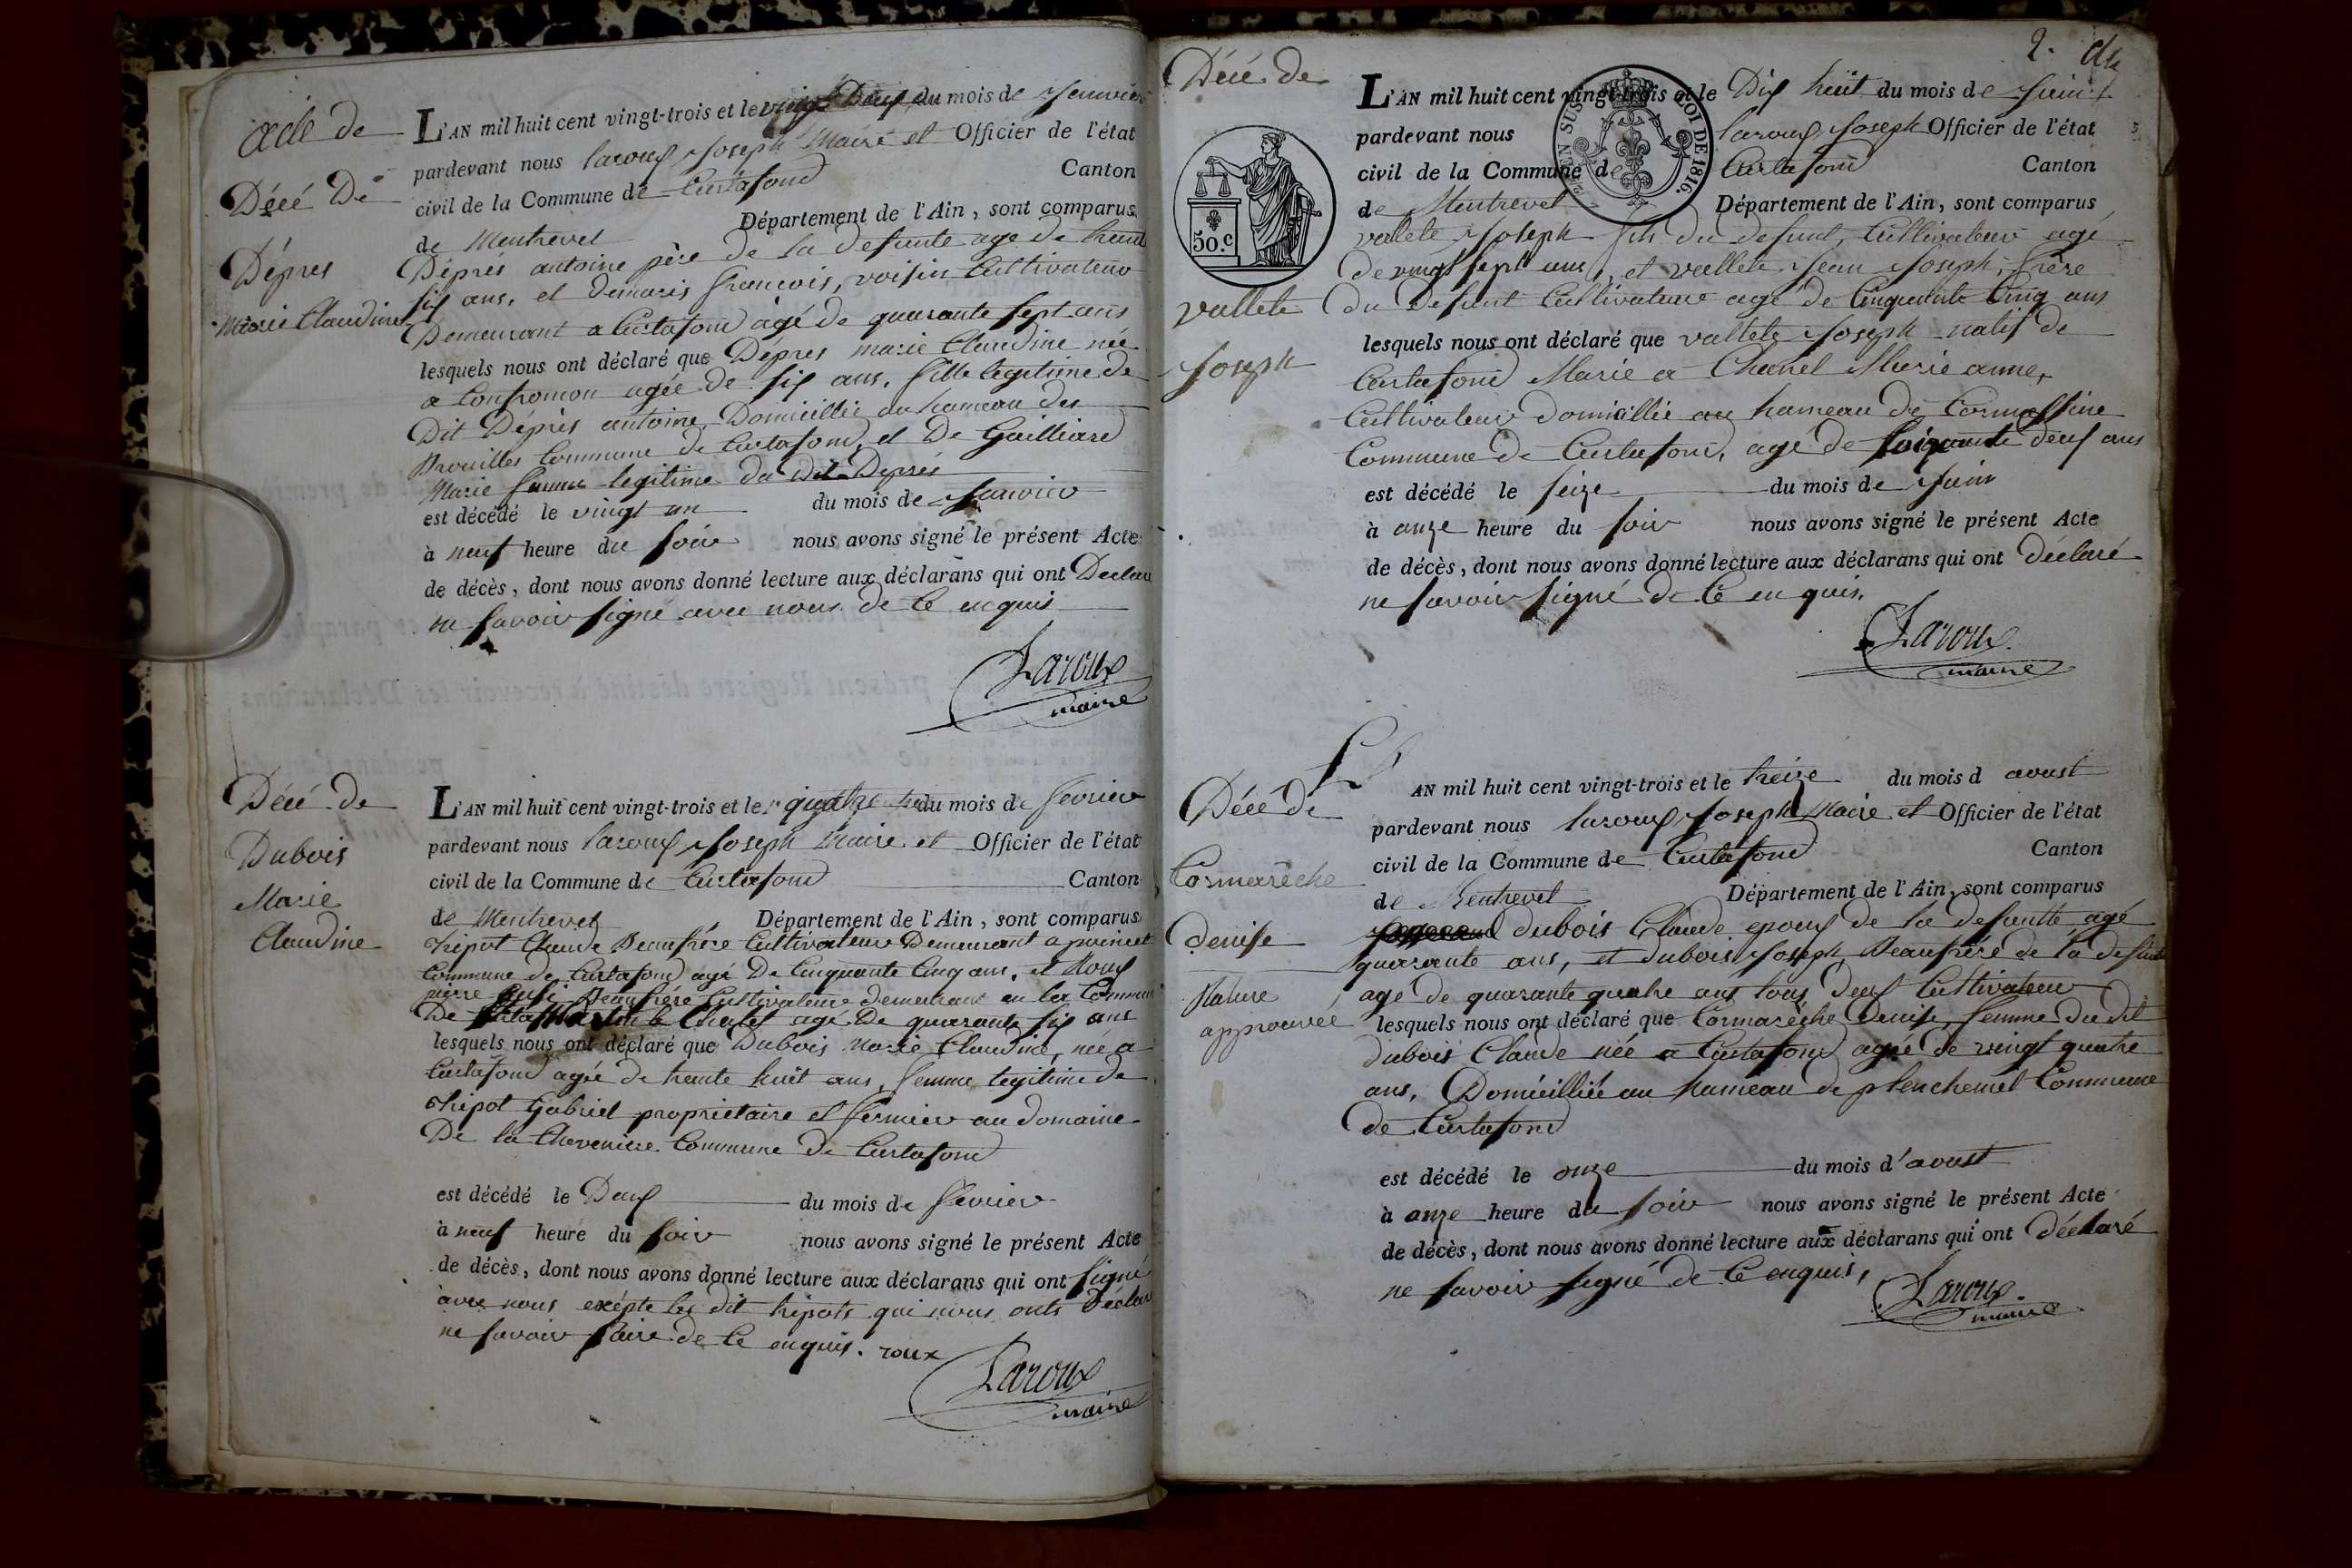 acte de
Décé De
Dépres
Marie Claudine
L'AN mil huit cent vingt-trois et le vingt Deux du mois de Janvier
pardevant nous laroux Joseph Maire et Officier de l'état
civil de la Commune de Curtafond Canton
de Montrevel Département de l'Ain, sont comparus
Déprés antoine père de la defunte age de trente
six ans, et demaris francois, voisin Cultivateur
Demeurant a Curtafond agé de quarante sept ans
lesquels nous ont déclaré que Dépres marie Claudine née
a Confranon agée de six ans, fille legitime de
Dit Déprés antoine Domicillié au hameau des
Brouilles Commune de Curtafond, et De Gailliard
Marie femme legitime du Dit Deprés
est décédé le vingt un du mois de Janvier
à neuf heure du soir nous avons signé le présent Acte
de décès, dont nous avons donné lecture aux déclarans qui ont Declaré
ne savoir signé avec nous de Ce enquis
Laroux
maire
Décé de
Dubois
Marie
Claudine
L'AN mil huit cent vingt-trois et le quatre du mois de fevrier
pardevant nous laroux Joseph Maire et Officier de l'état
civil de la Commune de Curtafond Canton
de Montrevel Département de l'Ain, sont comparus
thipot Claude Beaufrére Cultivateur Demeurant a
Commune de Curtafond agé De Cinquante Cinq ans, et Roux
pierre aussi Beaufrére Cultivateur demeurant en la Commune
De Martin le Chatel agé De quarante six ans
lesquels nous ont déclaré que Dubois Marie Claudine, née a
Curtafond agée de trente huit ans, femme legitime de
thipot Gabriel proprietaire et fermier au domaine
De la Cheveniere Commune de Curtafond
est décédé le Deux du mois de fevrier
à neuf heure du soir nous avons signé le présent Acte
de décès, dont nous avons donné lecture aux déclarans qui ont signé
avec nous exépte les dit thipots qui nous onts Déclaré
ne savoir faire de Ce enquis. roux
Laroux
maire
2.
Décé de
50.c
vallete
Joseph
L'AN mil huit cent vingt-trois et le Dix huit du mois de Juin
pardevant nous laroux Joseph Officier de l'état
civil de la Commune de Curtafond Canton
de Montrevel Département de l'Ain, sont comparus
EN SUS LOI DE 1816.
vallete Joseph fils du defunt, Cultivateur agé
de vingt sept ans, et vallete Jean Joseph, frère
du defunt Cultivateur agé de Cinquante Cinq ans
lesquels nous ont déclaré que vallete Joseph natif de
Curtafond Marié a Chanel Marie anne,
Cultivateur domicillié au hameau de Cormassine
Commune de Curtafond, agé de soixante deux ans
est décédé le seize du mois de Juin
à onze heure du soir nous avons signé le présent Acte
de décès, dont nous avons donné lecture aux déclarans qui ont déclaré
ne savoir signé de Ce en quis.
Laroux.
maire
Décé de
Cormarêche
denise
Rature
approuvée
L'AN mil huit cent vingt-trois et le treize du mois d avust
pardevant nous laroux Joseph Maire et Officier de l'état
civil de la Commune de Curtafond Canton
de Montrevel Département de l'Ain, sont comparus
dubois Claude epoux de la defunte, agé
quarante ans, et dubois Joseph Beaufrère de la defunte
agé de quarante quatre ans tous deux Cultivateur
lesquels nous ont déclaré que Cormarêche Denise, femme du dit
dubois Claude née a Curtafond agée de vingt quatre
ans, Domicilliée au hameau de plenchemel Commune
de Curtafond
est décédé le onze du mois d'avust
à onze heure du soir nous avons signé le présent Acte
de décès, dont nous avons donné lecture aux déclarans qui ont déclaré
ne savoir signé de Ce enquis,
Laroux.
maire